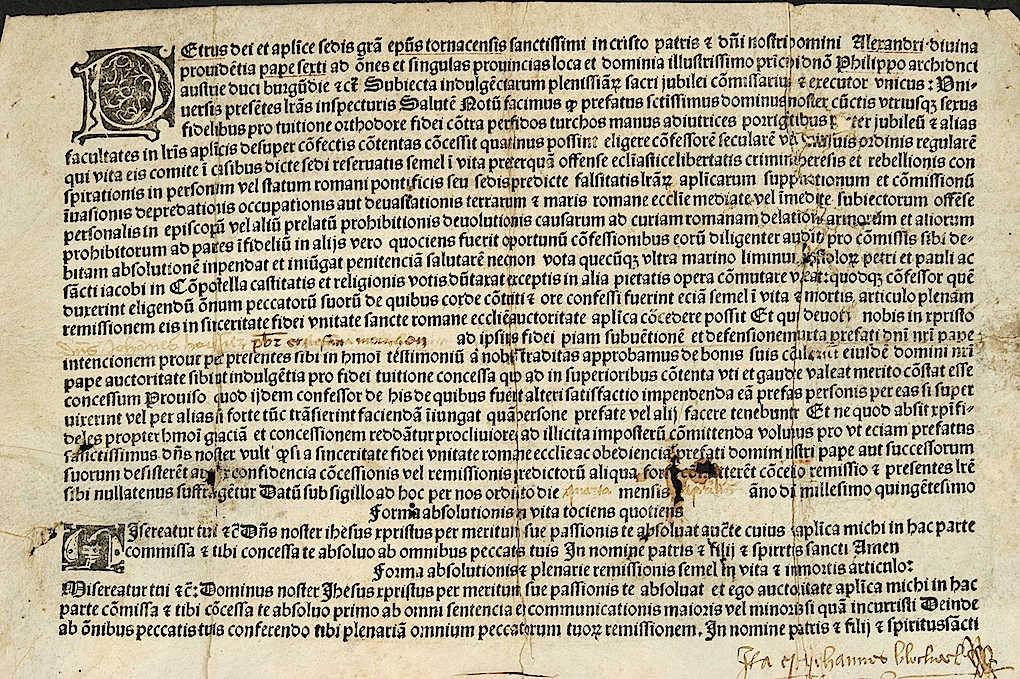 Petrus dei et aplice sedis grã epūs tornacensis sanctissimi in cristo patris ⁊ dñi nostri domini Alexandri diuina
prouidētia pape sexti ad ōnes et singulas prouincias loca et dominia illustrissimo prīchi dnō Philippo archidnci
austrie duci burgūdie ⁊ cē Subiecta indulgēctiarum plenissiaꝝ sacri jubilei cōmissariu ⁊ executor vnicus : Vni-
uersis presētes lrãs inspecturis Salutē Notū facimus ꝙ prefatus sctissimus dominus noster cūctis vtriusqꝫ sexus
fidelibus pro tuitione orthodore fidei cōtra perfidos turchos manus adiutrices porrigtibus ter jubileū ⁊ alias
facultates in lrīs aplīcis desuper cōfectis cōtentas cōcessit quatinus possint eligere cōfessorē secularē ordinis regularē
qui vita eis comite ī casibus dicte sedi reseruatis semel ī vita preterquã offense eclīastice libertatis criminī heresis et rebellionis con
spirationis in personam vel statum romani pontificis seu sedis predicte falsitatis lrãꝝ aplīcarum suppationum et cōmissionū
īuasionis depredatiois occupationis aut deuastationis terrarum ⁊ maris romane ecclīe mediate vel īmediate subiectorum offēse
personalis in episcopū vel aliū prelatū prohibitionis deuolutionis causarum ad curiam romanam delationi armorum et aliorum
prohibitorum ad partes īfideliū in alijs vero quociens fuerit oportunū cōfessionibus eorū diligenter audit pro cōmissis sibi de-
bitam absolutionē inpendat et iniūgat penitenciã salutarē necnon vota quecūqꝫ vltra marino liminū apostoloꝝ petri et pauli ac
sācti iacobi in Cōpostella castitatis et religionis votis dūtaxat exceptis in alia pietatis opera cōmutare vleat: quodqꝫ cōfessor quē
duxerint eligendū ōnum peccatorū suorū de quibus corde cōtriti ⁊ ore confessi fuerint eciã semel ī vita ⁊ mortis articulo plenam
remissionem eis in sinceritate fidei vnitate sancte romane ecclīe auctoritate aplīca cōcedere possit Et qui deuoti nobis in xpristo
Johannes pbr ad ipsius fidei piam subuētionē et defensionem iuxta prefati dnī nrī pape
intencionem prout per presentes sibi in hmoī testimoniū a nobis traditas approbamus de bonis suis eiusdē domini nrī
pape auctoritate sibi ut indulgētia pro fidei tuitione concessa quo ad in superioribus cōtenta vti et gaude valeat merito cōstat esse
concessum Prouiso quod ijdem confessor de his de quibus fuerit alteri satisfactio impendenda eã prefas personis per eas si super
uixerint vel per alias si forte tūc trãsierint faciendã īiungat quã persone prefate vel alij facere tenebuntr Et ne quod absit xpīfi-
deles propter hmoī graciã et concessionem reddãtur procliuiores ad illicita imposterū cōmittenda volumus pro vt eciam prefatus
sanctissimus dñs noster vult ꝙ si a sinceritate fidei vnitate romane ecclīe ac obediencia prefati domini nostri pape aut successorum
suorum desisterēt aut ex confidencia cōcessionis vel remissionis predictorū aliqua forsan cōmitterēt cōcesio remissio ⁊ presentes lrē
sibi nullatenus suffragētur Datū sub sigillo ad hoc per nos ordīto die quarta mensis ãno di millesimo quingētesimo
Forma absolutionis in vita tociens quotiens
Misereatur tui ⁊ cē Dñs noster ihesus xpristus per meritum sue passionis te absoluat aucte cuius aplīca michi in hac parte
commissa ⁊ tibi concessa te absoluo ab omnibus peccatis tuis In nomine patris ⁊ filij ⁊ spirrtis sancti Amen
Forma absolutionis ⁊ plenarie remissionis semel in vita ⁊ in mortis articulo:
Misereatur tui ⁊ cē: Dominus noster Jhesus xpristus per meritum sue passionis te absoluat et ego auctoritate aplīca michi in hac
parte cōmissa ⁊ tibi cōcessa te absoluo primo ab omni sentencia excommunicationis maioris vel minoris si quã incurristi Deinde
ab ōnibus peccatis tuis conferendo tibi plenariã omnium peccatorum tuoꝝ remissionem. In nomine patris ⁊ filij ⁊ spiritus sãcti
Ita est Johannes